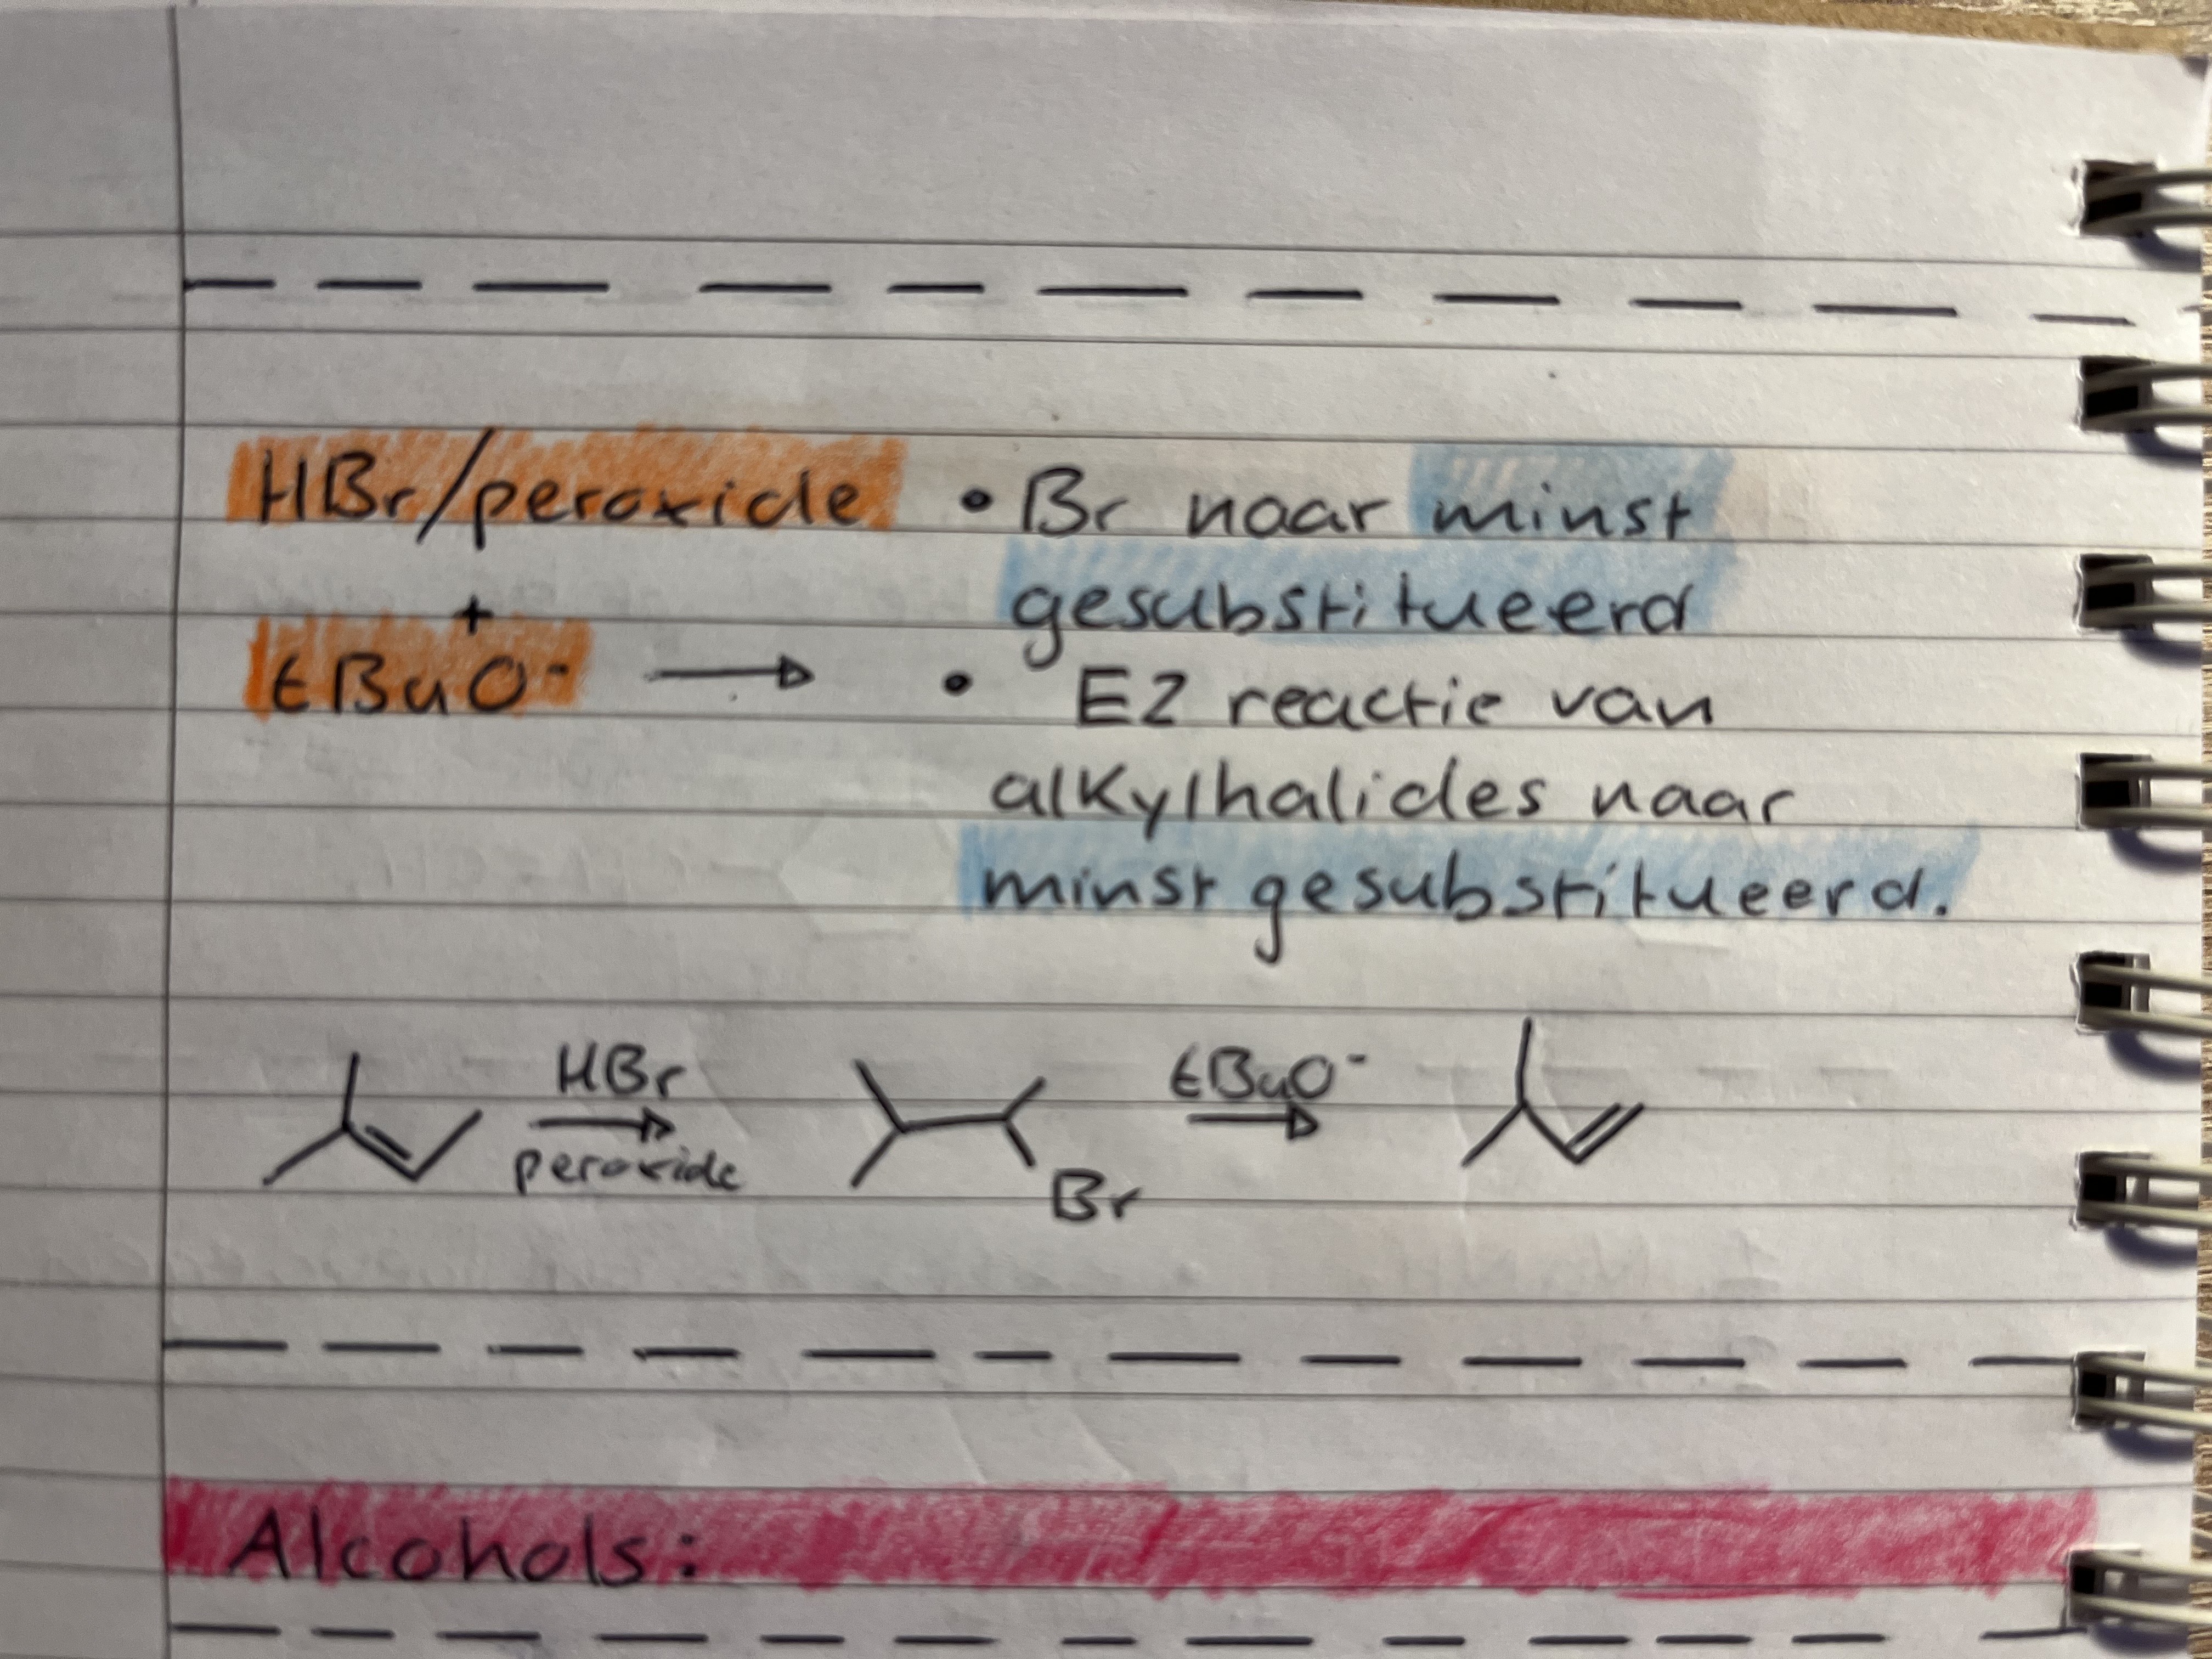 HBr/peroxide • Br naar minst
gesubstitueerd
+
tBuO⁻ → • E2 reactie van
alkylhalides naar
minst gesubstitueerd.
HBr
peroxide
Br
tBuO⁻
Alcohols: